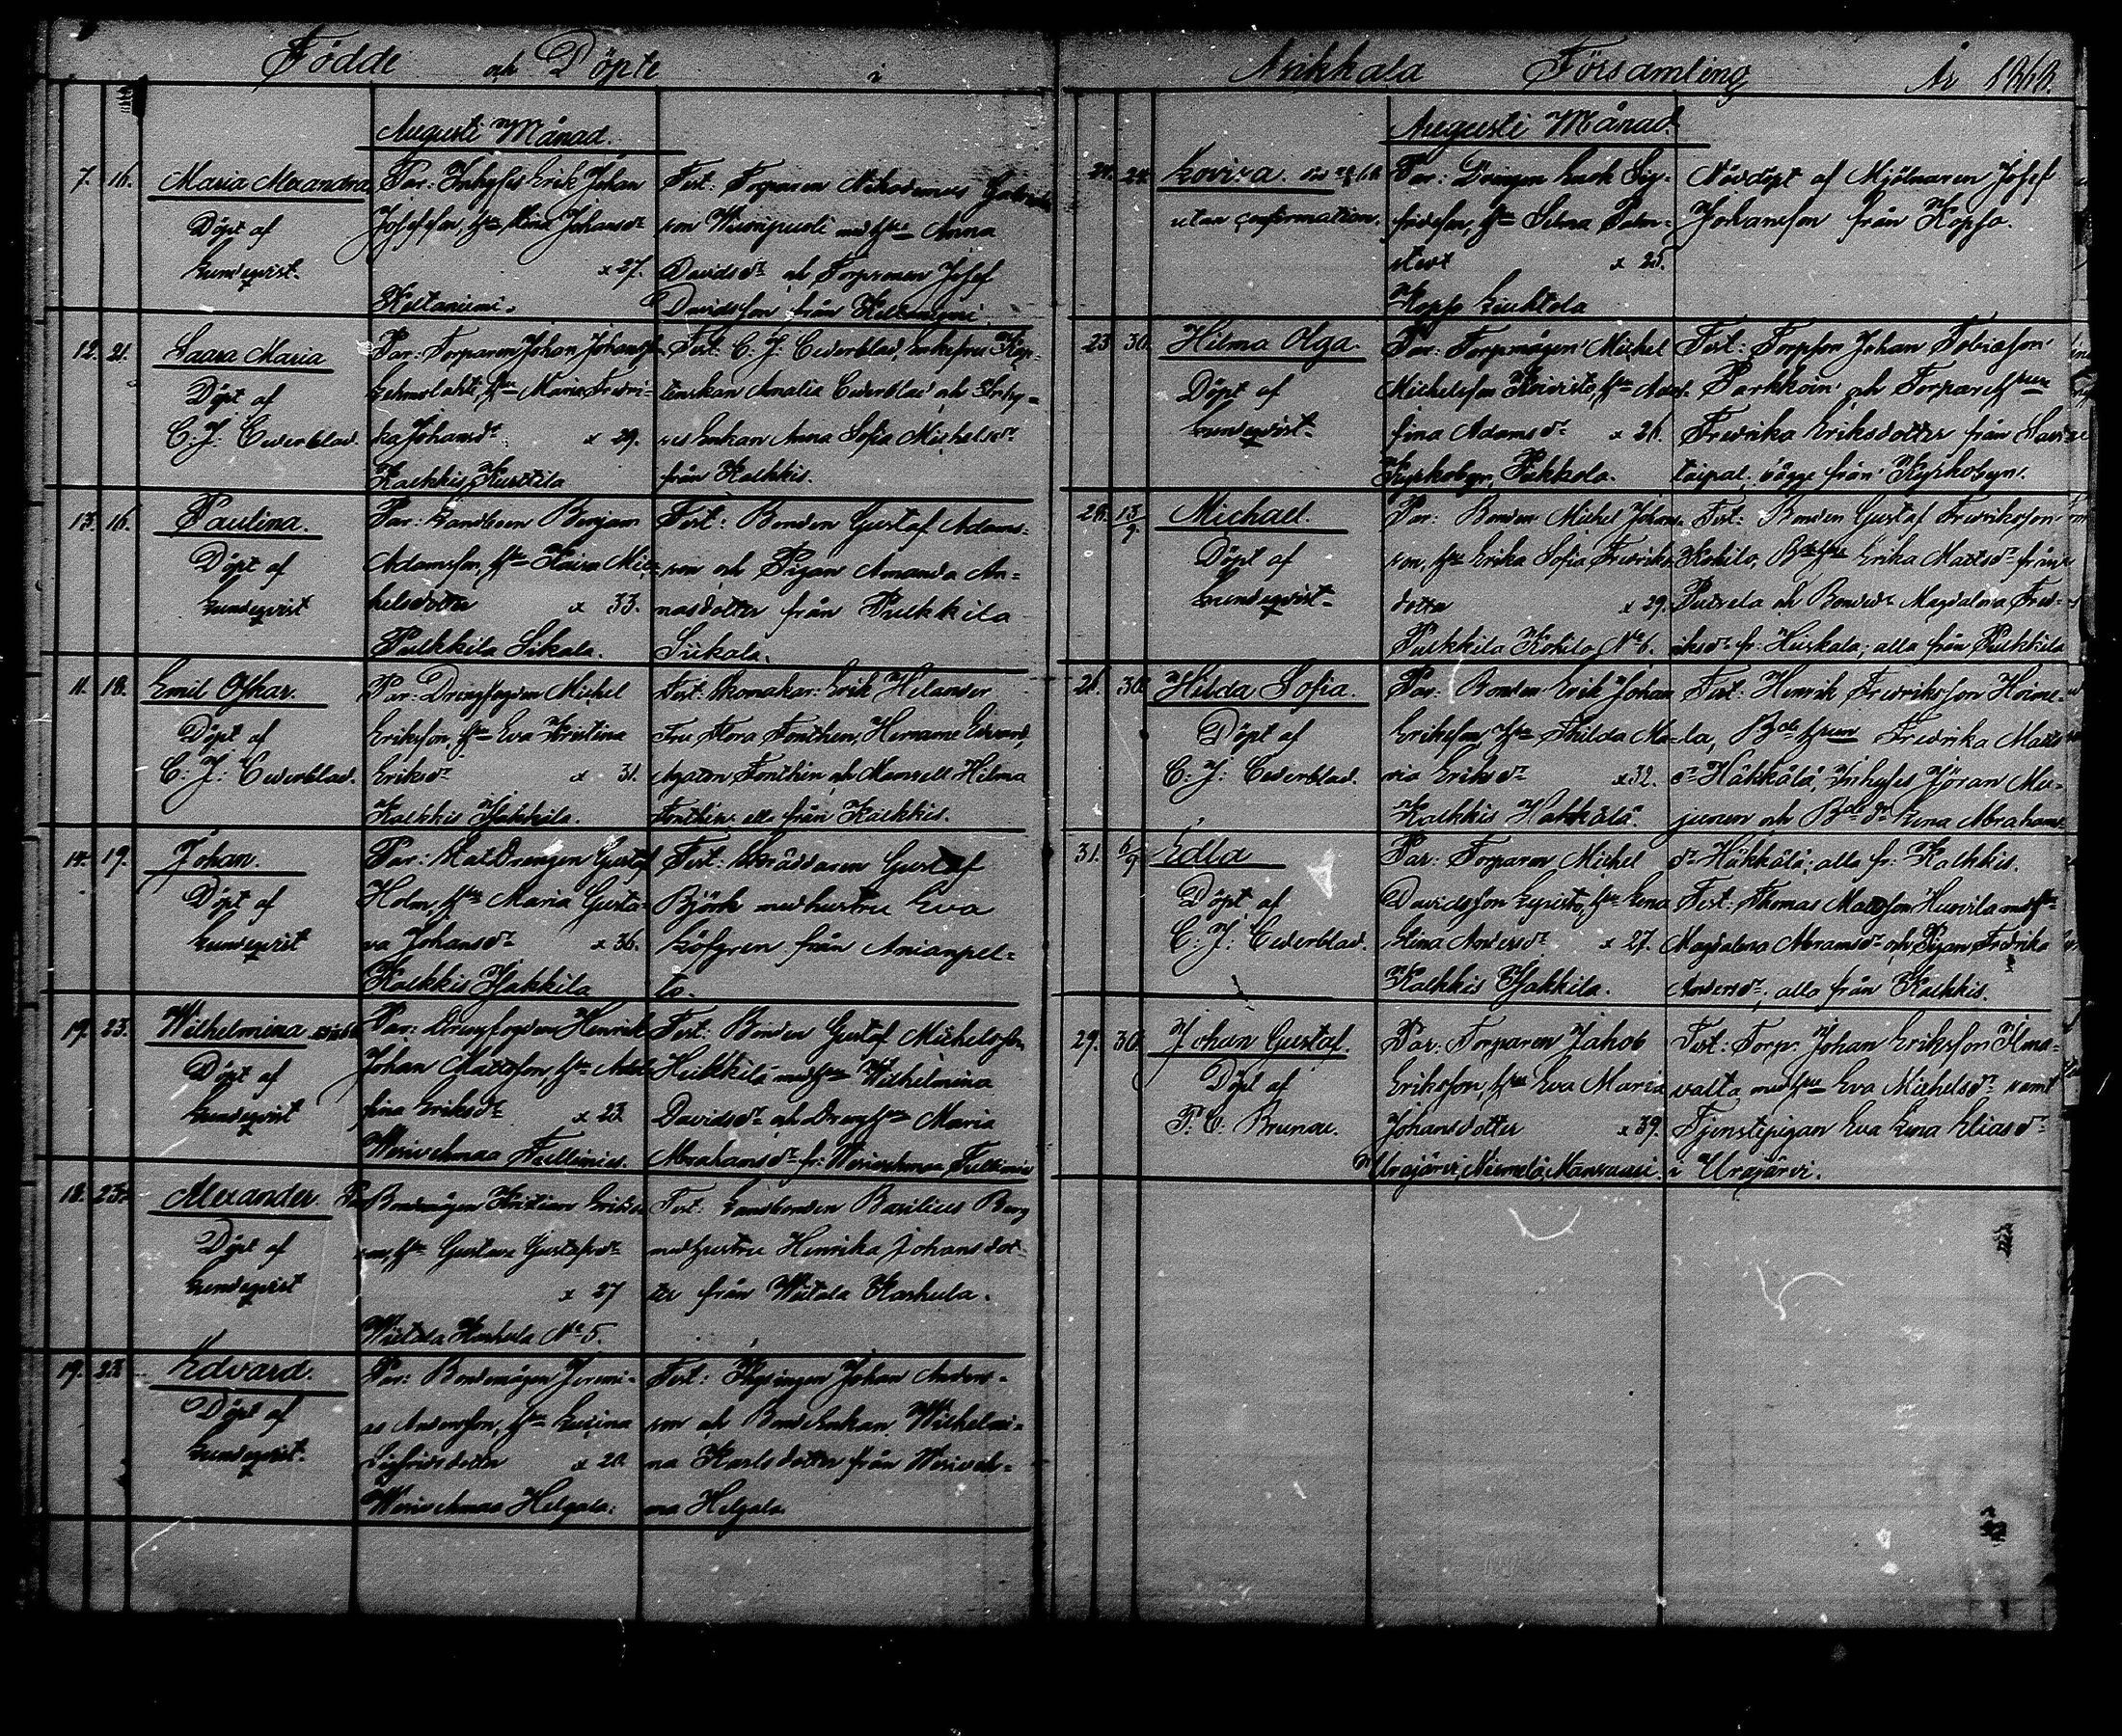 Födde och Döpte i
Augusti Månad.
7. 16. Maria Alexandra
Döpt af
Lundqvist.
Par: Inhyses Erik Johan
Josefsson, hu Maria Johansdr
x 27.
Keltaniemi.
Test: Torparen Nikodemus
son med hu Anna
Davidsdr och Torparen Josef
Davidsson från Keltaniemi
12. 21. Saara Maria
Döpt af
C. J. Cederblad.
Par: Torparen Johan Johansson
hu Maria Fredri-
ka Johansdr x 29.
Kalkkis Kurttila
Test: C. J. Cederblad, Enkefru Kap-
tenskan Amalia Cederblad och Inhy-
ses Enkan Anna Sofia Michelsdr
från Kalkkis.
13. 16. Paulina.
Döpt af
Lundqvist
Par: Landboen Benjam
Adamsson, hu Loviisa Mi-
kelsdotter x 33.
Pulkkila Sikala.
Test: Bonden Gustaf Adams-
son och Pigan Amanda An-
nasdotter från Pulkkila
Siikala.
11. 18. Emil Oskar.
Döpt af
C. J. Cederblad.
Par: Drengfogden Michel
Eriksson, hu Eva Kristina
Eriksdr x 31.
Kalkkis Hakkila.
Test: Skomakar: Erik Helander
Fru Flora Fonthen, Herrarne Edvard,
Agaton Fonthén och Mamsell Hilma
Fonthén alla från Kalkkis.
14. 19. Johan.
Döpt af
Lundqvist
Par: Gustaf
Holm, hu Maria Gusta-
va Johansdr x 36.
Kalkkis Hakkila
Test: Skräddaren Gustaf
Björk med hustru Eva
Löfgren från Anianpel-
to.
19. 23. Wilhelmina
Döpt af
Lundqvist
Par: Drengfogden Henrik
Johan Mattsson, hu Adol-
fina Eriksdr x 23.
Wesivehmaa Tullinies.
Test: Bonden Gustaf Michelsson
Heikkilä med hu Wilhelmina
Davidsdr och Drenghu Maria
Abrahamsdr fr: Wesivehmaa Tullinies
18. 23. Alexander.
Döpt af
Lundqvist
Par Bondemågen Kristian Eriks-
son, hu Gustava Gustafsdr
x 27
Wiitala Kaskula No 5.
Test: Landbonden Basilius Berg
med hustru Henrika Johansdot-
ter från Wiitala Kaskula.
19. 23. Edvard.
Döpt af
Lundqvist.
Par: Bondemågen Jeremi-
as Andersson, hu Lovina
Sigfridsdotter x 20.
Wesivehmaa Helgala.
Test: Ynglingen Johan Anders-
son och Bondeenkan Wilhelmi-
na Karlsdotter från Wesiveh-
maa Helgala.
Asikkala Församling År 1868.
Augusti Månad.
24. Lovisa.
utan confirmation.
Par: Drengen Isak Sig-
fridsson, hu Selma
x 25.
Test: Nöddöpt af Mjölnaren Josef
Johansson från Kopso.
23 30. Hilma Olga.
Döpt af
Lundqvist.
Par: Torpmågen Michel
Michelsson Koivisto, hu Adol-
fina Adamsdr x 26.
Kyrkobyn, Pukkola.
Test: Torpson Johan Tobiasson
Parkkoin och Torparehun
Fredrika Eriksdotter från
taipal. bägge från Kyrkobyn.
13/9 Michael.
Döpt af
Lundqvist.
Par: Bonden Michel Johans-
son, hu Erika Sofia Fredriks-
dotter x 29.
Pulkkila Kokila No 6.
Test: Bonden Gustaf Fredriksson
Kokila, Bdehu Erika Mattsdr från
och Bondedr Magdalena Fred-
riksdr fr: Huskala; alla från Pulkkila
30. Hilda Sofia.
Döpt af
C. J. Cederblad.
Par: Bonden Erik Johan
Eriksson, hu Thilda Ma-
ria Eriksdr x 32.
Kalkkis Häkkälä.
Test: Henrik Fredriksson Heime-
la, Bdehun Fredrika Matts-
dr Häkkälä, Inhyses Jöran Meu-
junen och Bdedr Lena Abrahams-
dr Häkkälä; alla fr: Kalkkis.
31. 6/9 Edla
Döpt af
C. J. Cederblad.
Par: Torparen Michel
Davidsson hu Lena
Stina Andersdr x 27.
Kalkkis Hakkila.
Test: Thomas Mattsson Hurvila med hu
Magdalena Abramsdr och Pigan Fredrika
Andersdr, alla från Kalkkis.
29. 30. Johan Gustaf.
Döpt af
P. C. Brunou.
Par: Torparen Jakob
Eriksson, hu Eva Maria
Johansdotter x 39.
Urajärvi, Niemelä, Mansausi.
Test: Torp. Johan Eriksson Ilma-
valta med hu Eva Michelsdr samt
Tjenstepigan Eva Lena Eliasdr
i Urajärvi.